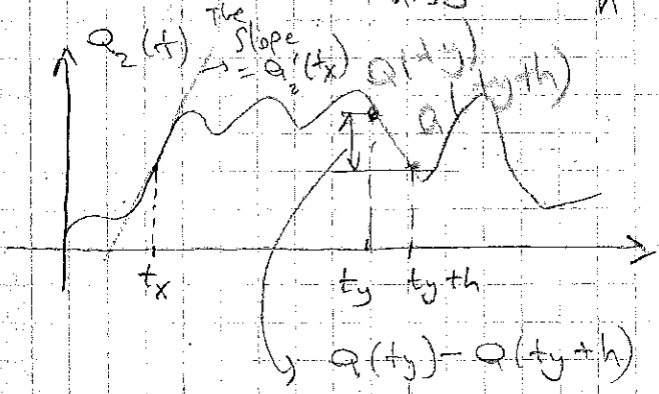 The
Q₂(t) Slope
= Q₂'(tₓ)
Q(ty)
Q(ty+h)
tₓ ty ty+h
Q(ty) - Q(ty+h)